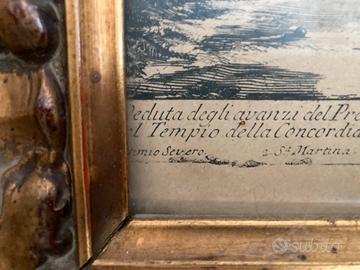 Veduta degli avanzi del Pro
l Tempio della Concordia
timio Severo. 2 S.ᵃ Martina.
subito